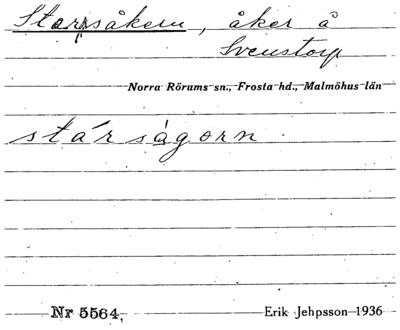 Starrsåkern, åker å
Svenstorp
Norra Rörums sn., Frosta hd., Malmöhus län
stársågorn.
Nr 5564, Erik Jehpsson 1936